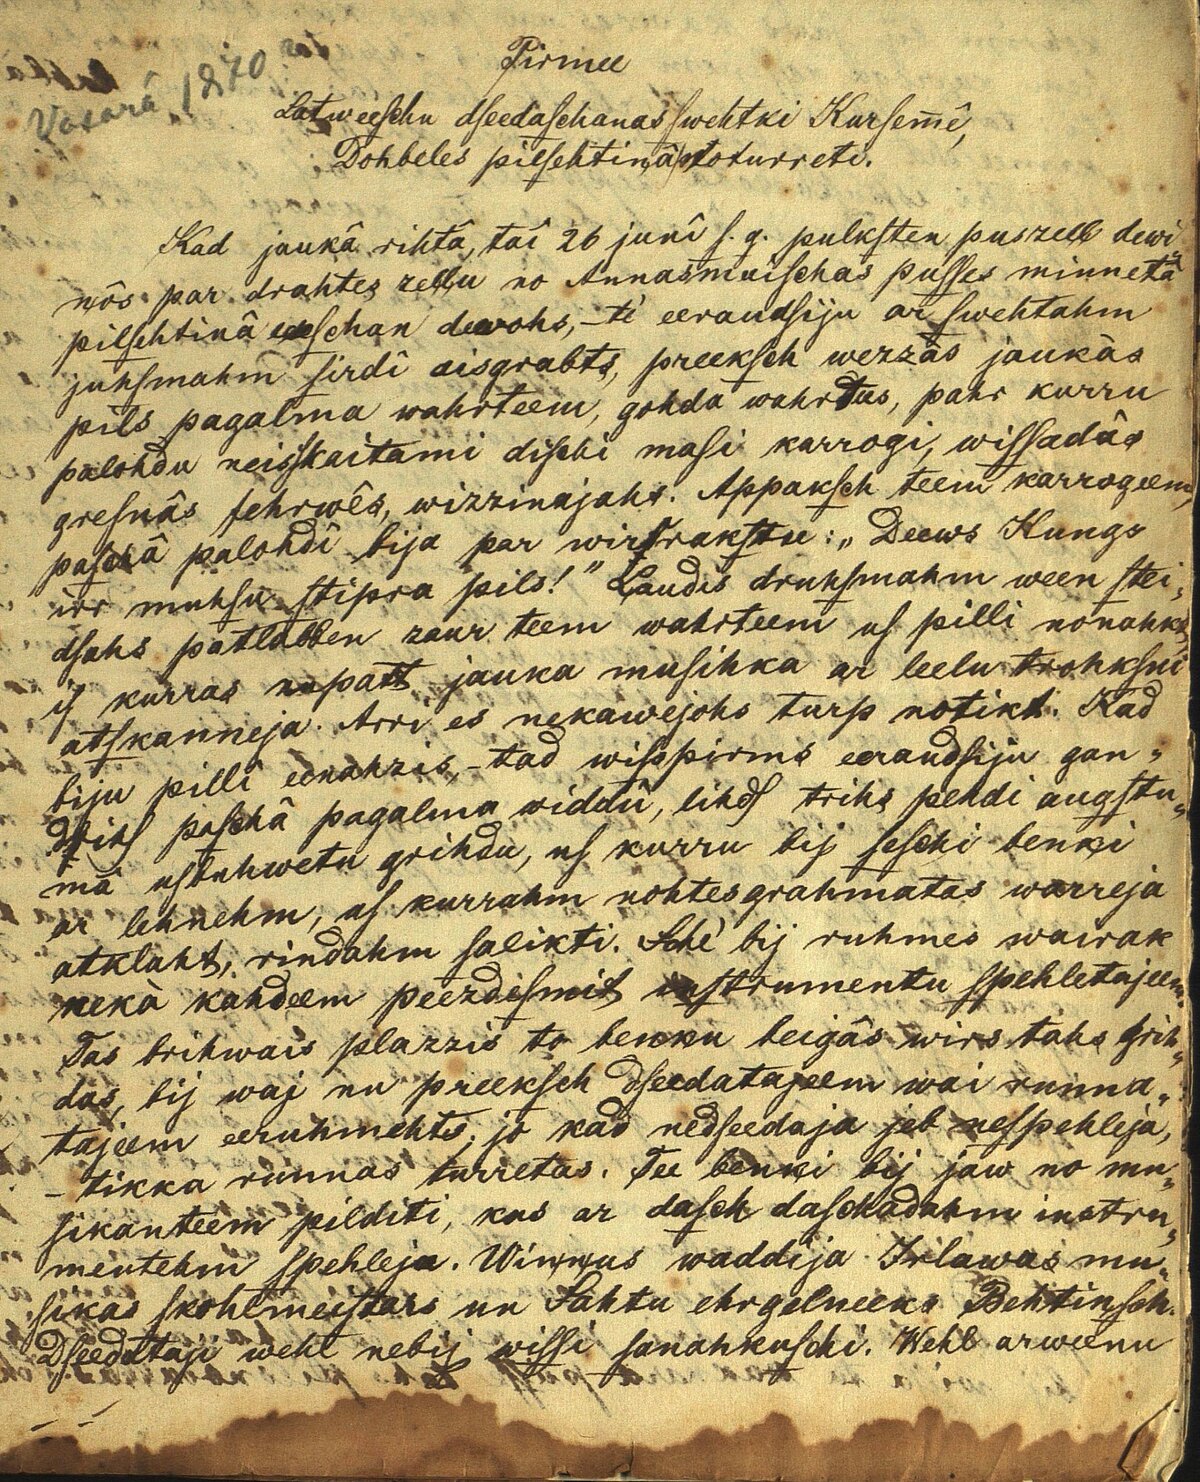 Vasarā 1870
Pirmee
Latweeschu dseedaschanas swehtki Kursemē,
Dohbeles pilsehtiņâ noturreti.
Kad jaukâ rihtâ, tai 26 junî s. g. pulksten puszell dewi-
ņôs par drahtes zellu no Annasmuischas pusses minnetâ
pilsehtinâ eeschan dewohs, – tê eeraudsiju ar swehtahm
juhsmahm sirdî aisgrabts, preeksch wezzâs jaukâs
pils pagalma wahrteem, gohda wahrtus, pahr kurru
palohdu neisskaitami dischi masi karrogi, wissadâs
gresnâs fehrwês, wizzinajahs. Appaksch teem karrogeem,
paschâ palohdî bija par wirsrakstu: „Deews Kungs
irr muhsu stipra pils!" Laudis druhsmahm ween stei-
dsahs patlabben zaur teem wahrteem us pilli nonahkt,
is kurras nupatt jauka musihka ar leelu trohksni
atskanneja. Arri es nekawejohs turp notikt. Kad
biju pillî eenahzis, – tad wisspirms eeraudsiju gan-
dris paschâ pagalma widdû, lihds trihs pehdi augstu-
mâ usbuhwetu grihdu, us kurru bij seschi benki
ar lehnehm, us kurrahm nohtesgrahmatas warreja
atklaht, rindahm salikti. Schê bij ruhmes wairak
nekâ kahdeem peezdesmit instrumentu spehletajeem.
Tas brihwais plazzis to benku beigâs wirs tahs grih-
das, bij waj nu preeksch dseedatajeem wai runna-
tajeem eeruhmehts; jo kad nedseedaja jeb nespehleja,
– tikka runnas turretas. Tee benki bij jaw no mu-
sikanteem pilditi, kas ar dasch daschadahm instru-
mentehm spehleja. Wiņņus waddija Irlawas mu-
sikas skohlmeistars un Sahtu ehrgelneeks Behtinsch.
Dseedataji wehl nebij wissi sanahkuschi. Wehl arweenu